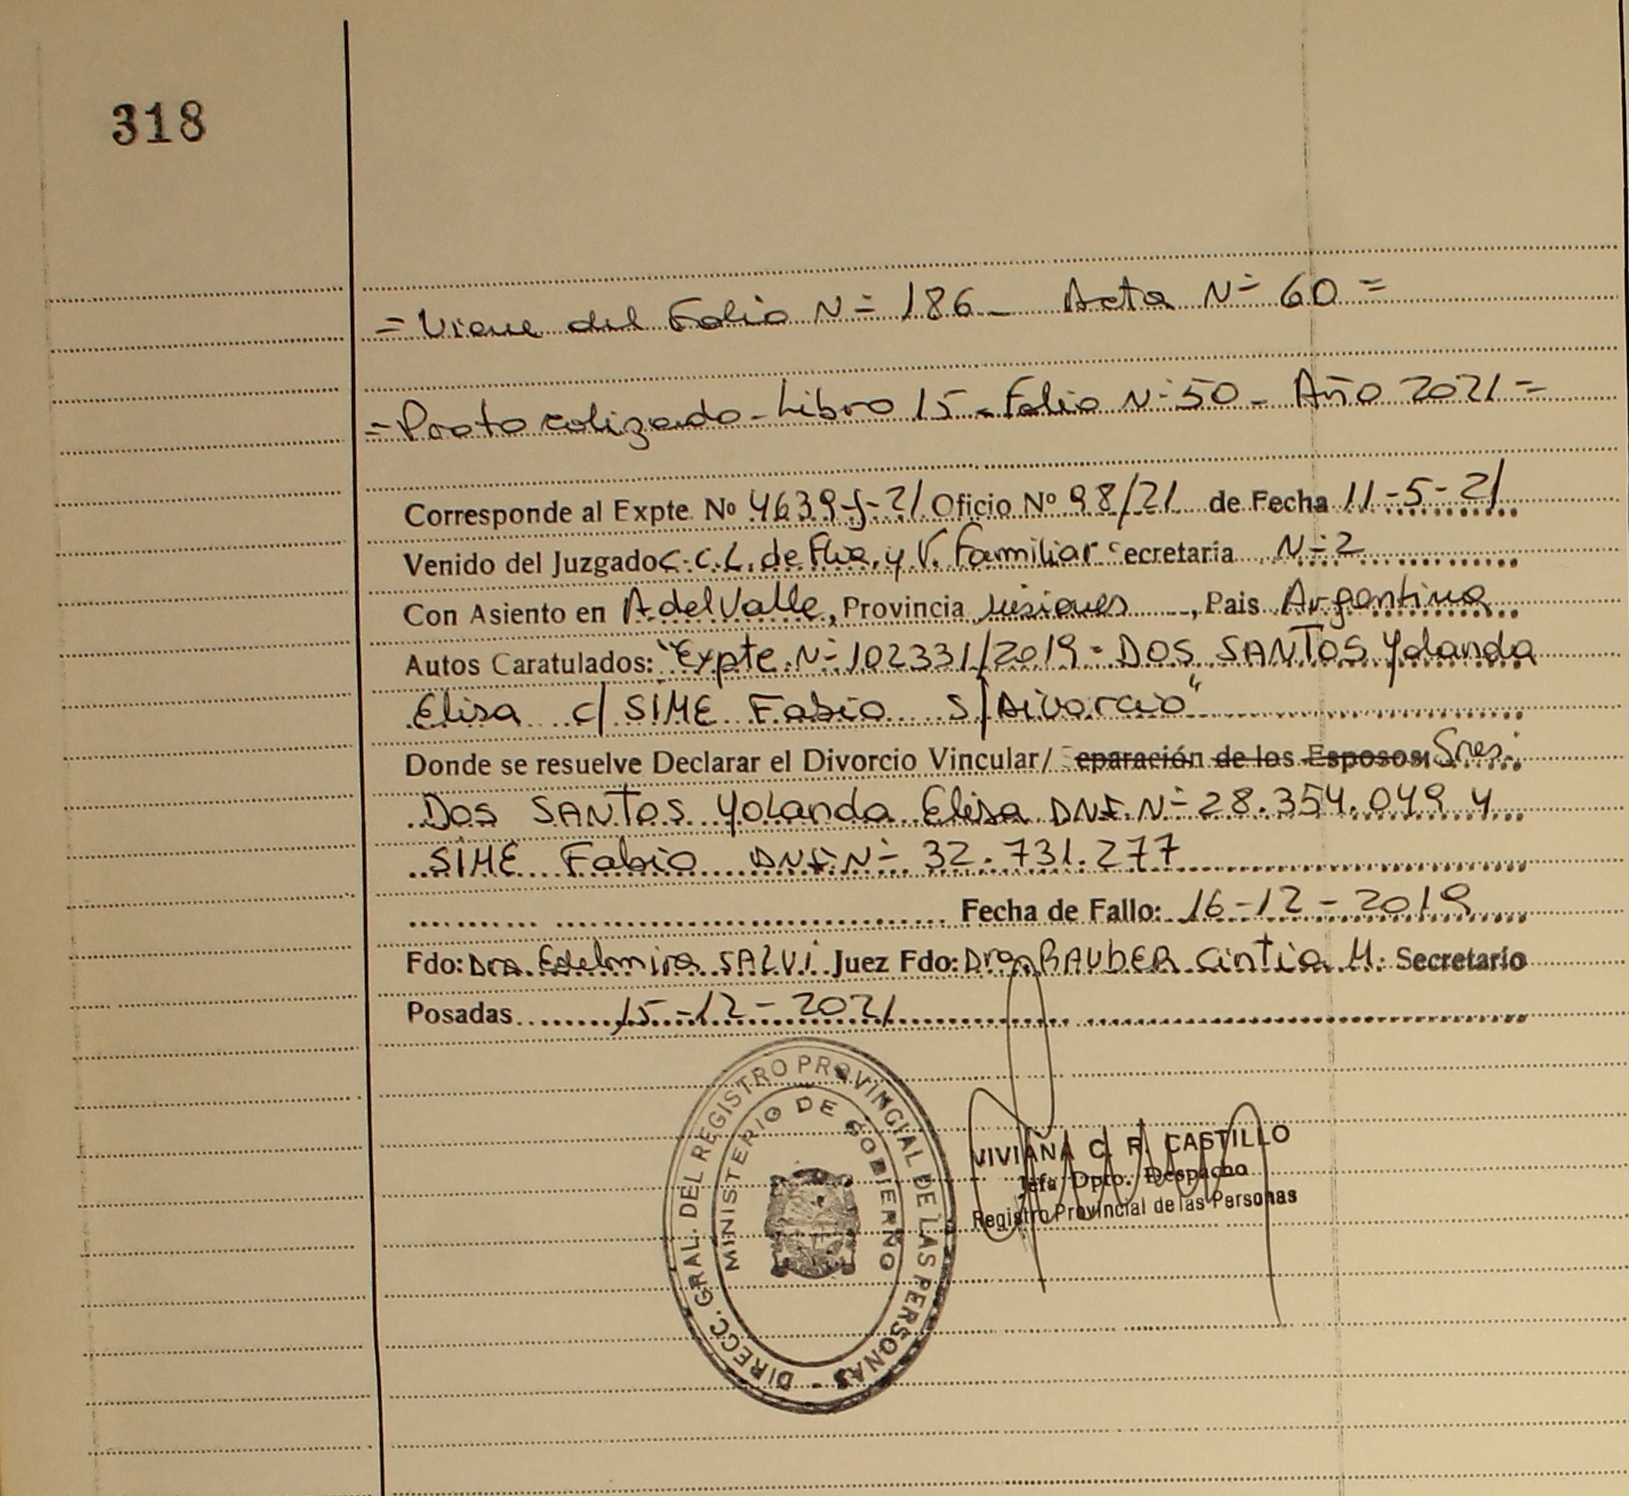 318
= Viene del Folio N= 186 - Acta N= 60 =
= Protocolizado - Libro 15 - Folio N= 50 - Año 2021 =
Corresponde al Expte. Nº 4639-J-21 Oficio Nº 98/21 de Fecha 11-5-21
Venido del Juzgado C.C.L. de Flia. y V. Familiar ecretaría N=2
Con Asiento en A del Valle, Provincia Misiones, Pais Argentina
Autos Caratulados: "Expte. N= 102331/2019 - DOS SANTOS Yolanda
Elisa c/ SIME Fabio s/Divorcio"
Donde se resuelve Declarar el Divorcio Vincular/ eparación de los Esposos: Sres.
DOS SANTOS Yolanda Elisa DNI. N= 28.354.049 y
SIME Fabio DNI N= 32.731.277
Fecha de Fallo: 16-12-2019
Fdo: Dra. Edelmira SALVI Juez Fdo: Dra RAUBER Cintia M. Secretario
Posadas 15-12-2021
DIRECC. GRAL. DEL REGISTRO PROVINCIAL DE LAS PERSONAS -
MINISTERIO DE GOBIERNO
VIVIANA C. R. CASTILLO
Jefa Dpto. Despacho
Registro Provincial de las Personas